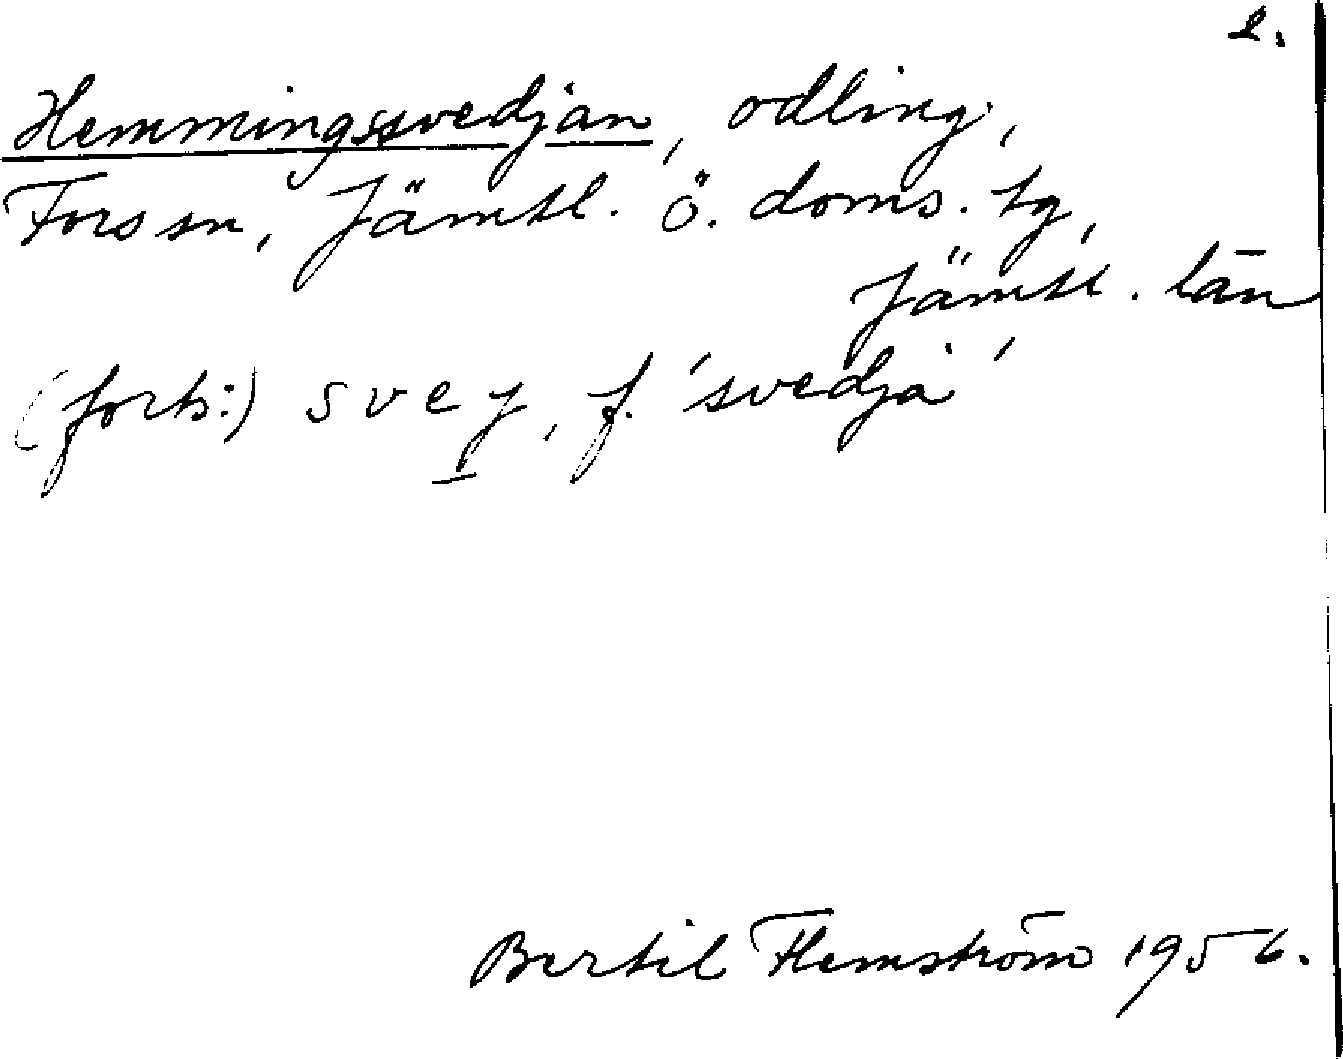 2.
Hemmingssvedjan, odling,
Fors sn, Jämtl. ö. doms. tg,
Jämtl. län
(forts:) svej, f. 'svedja'
Bertil Flemström 1956.